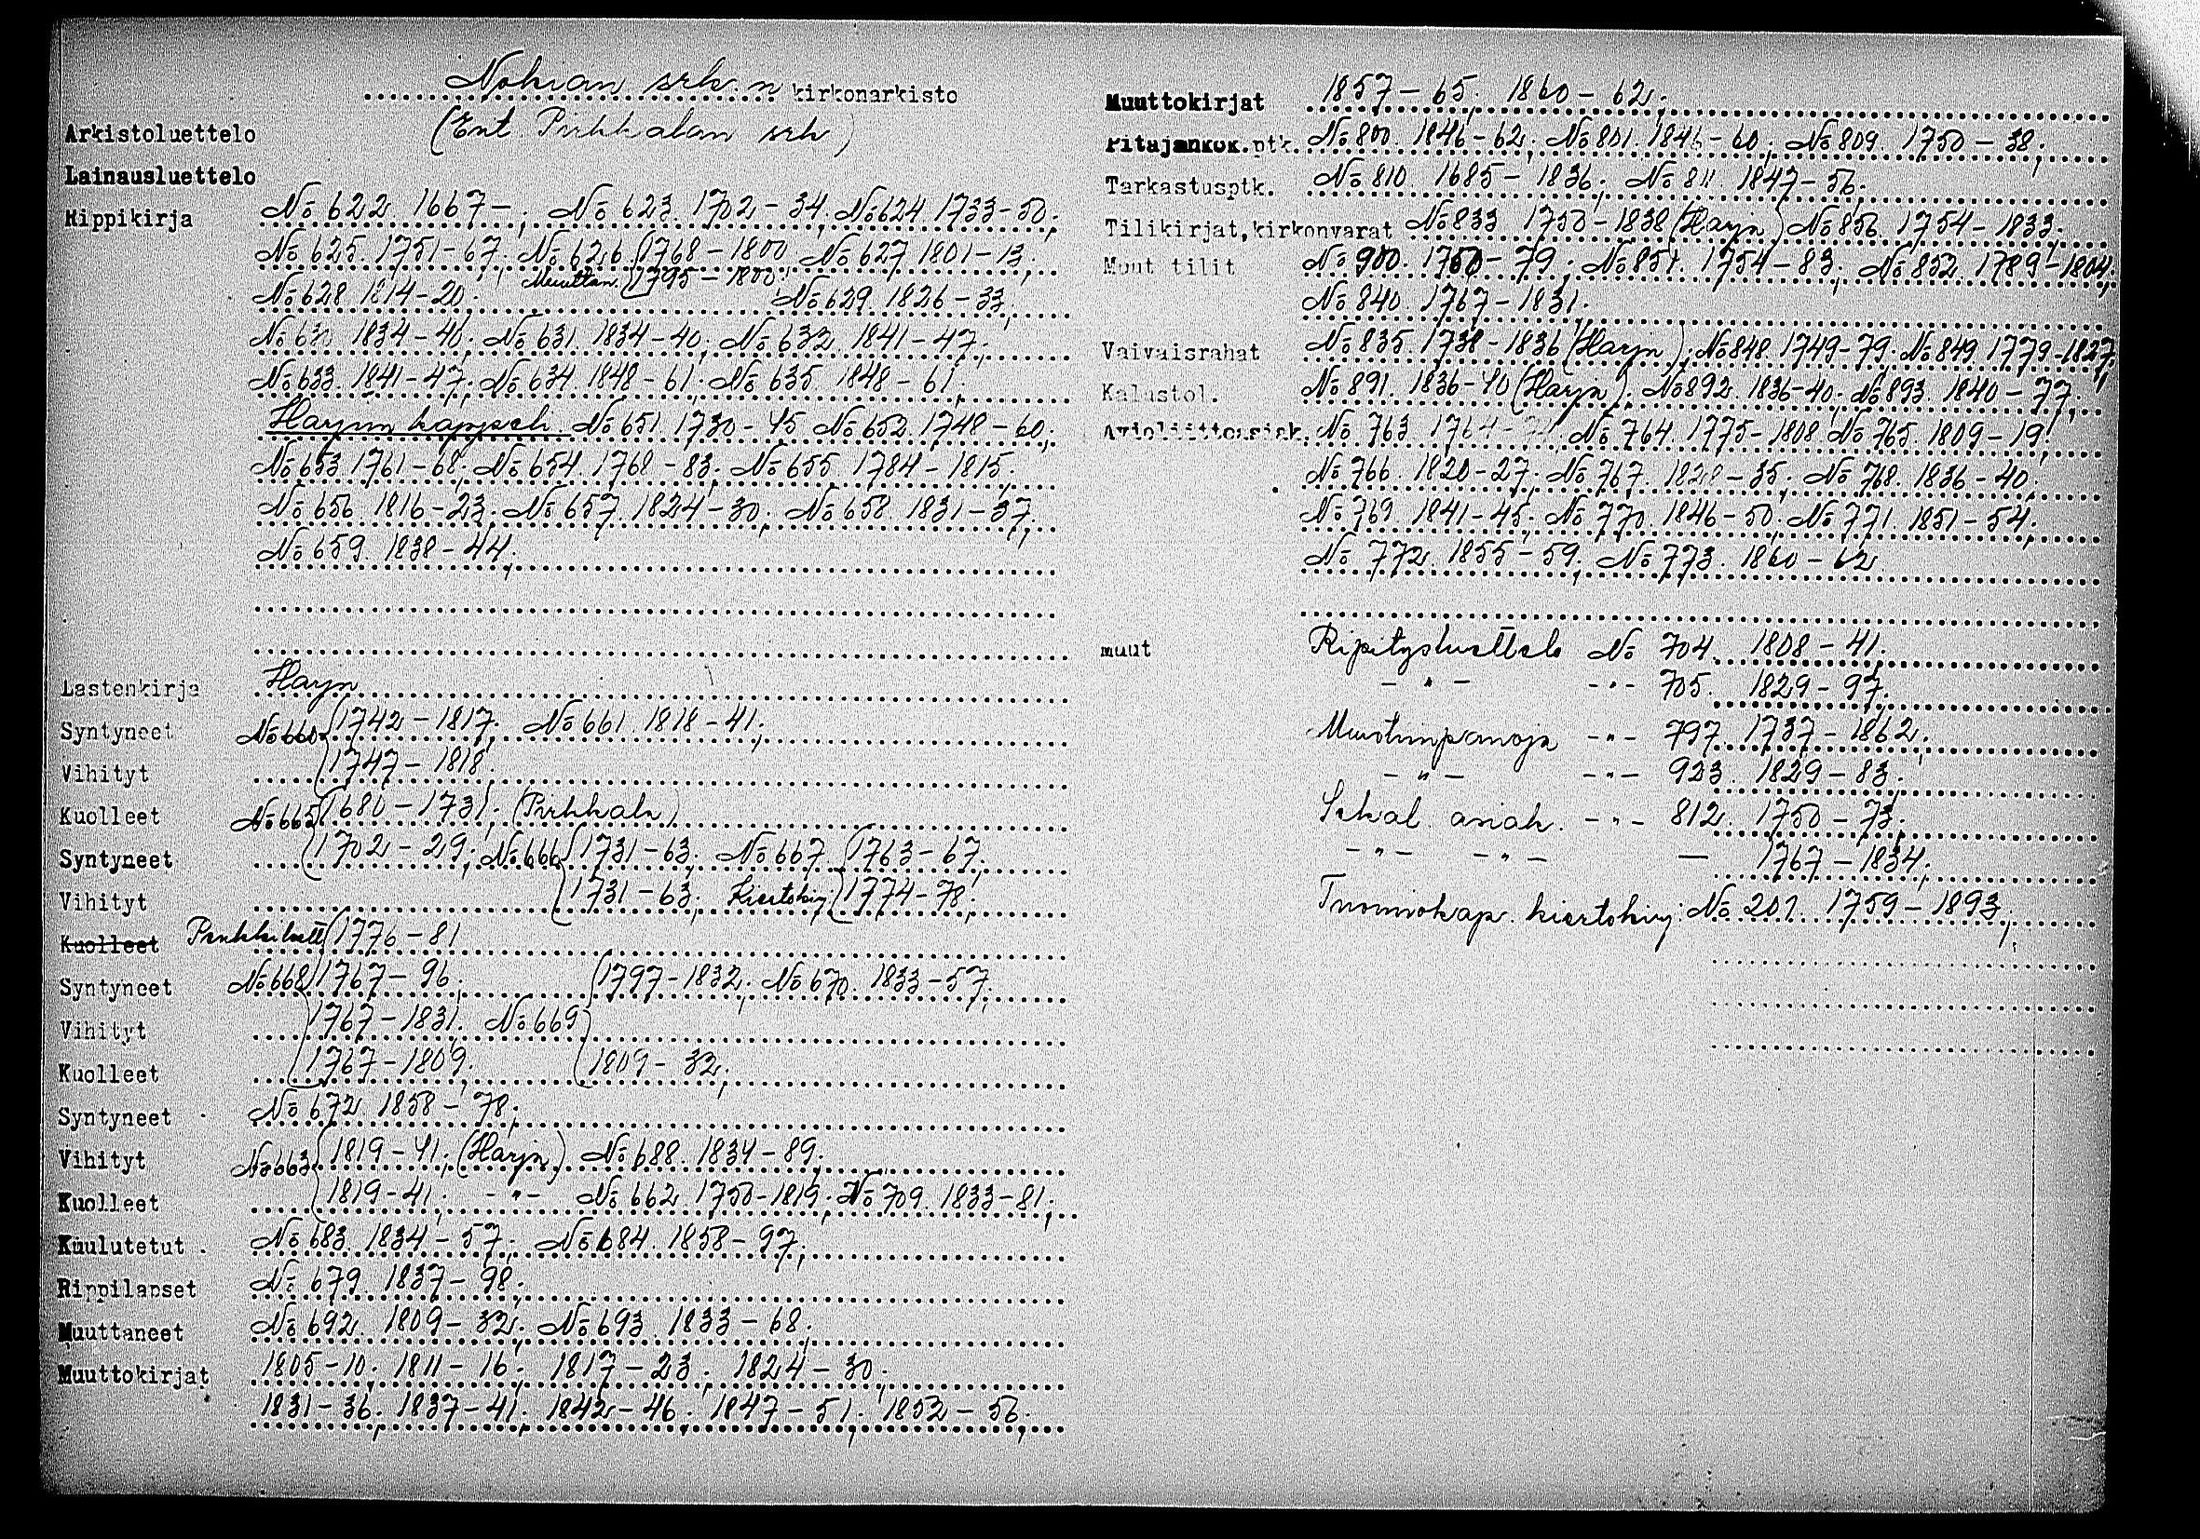 Nokian srk:n kirkonarkisto
Arkistoluettelo (Ent. Pirkkalan srk)
Lainausluettelo
Rippikirja No 622. 1667-; No 623. 1702-34; No 624. 1733-50;
No 625. 1751-67; No 626 (1768-1800 No 627 1801-13;
Muuttan. (1795-1800;
No 628 1814-20; No 629. 1826-33;
No 630 1834-40; No 631. 1834-40; No 632. 1841-47;
No 633. 1841-47; No 634. 1848-61; No 635. 1848-61;
Harjun kappseli. No 651. 1730-45 No 652. 1748-60;
No 653. 1761-68; No 654. 1768-83; No 655 1784-1815;
No 656 1816-23; No 657. 1824-30; No 658 1831-37;
No 659. 1838-44;
Lastenkirja Harjn
Syntyneet No 660 (1742-1817; No 661. 1818-41;
Vihityt (1747-1818;
Kuolleet No 665 (1680-1731; (Pirkkala)
Syntyneet (1702-29; No 666 (1731-63; No 667. (1763-67;
Vihityt (1731-63; Kiertokirj. (1774-78;
Kuolleet (1776-81
Syntyneet No 668 (1767-96; (1797-1832; No 670. 1833-57;
Vihityt 1767-1831. No 669
Kuolleet (1767-1809; (1809-32;
Syntyneet No 672. 1858-78;
Vihityt No 663 (1819-41; (Harjn) No 688. 1834-89;
Kuolleet (1819-41; -"- No 662 1750-1819; No 709. 1833-81;
Kuulutetut No 683. 1834-57; No 684. 1858-97;
Rippilapset No 679. 1837-98;
Muuttaneet No 692. 1809-32; No 693. 1833-68;
Muuttokirjat 1805-10; 1811-16; 1817-23; 1824-30;
1831-36; 1837-41; 1842-46; 1847-51; 1852-56;
Muuttokirjat 1857-65; 1860-62;
Pitäjänkok.ptk. No 800. 1846-62; No 801. 1846-60; No 809. 1750-38;
Tarkastusptk. No 810. 1685-1836; No 811. 1847-56;
Tilikirjat,kirkonvarat No 833. 1750-1838 (Harjn) No 856. 1754-1833;
Muut tilit No 900. 1760-79; No 851. 1754-83; No 852. 1789-1804;
No 840. 1767-1831;
Vaivaisrahat No 835. 1738-1836 (Harjn); No 848. 1749-79; No 849. 1779-1827;
Kalustol. No 891. 1836-40 (Harjn); No 892. 1836-40; No 893. 1840-77;
Avioliittoasiak. No 763 1764- No 764. 1775-1808 No 765. 1809-19;
No 766. 1820-27; No 767. 1828-35; No 768. 1836-40;
No 769. 1841-45; No 770. 1846-50; No 771. 1851-54;
No 772. 1855-59; No 773. 1860-62
muut Ripitysluettelo No 704. 1808-41.
-"- -"- 705. 1829-97.
Muistiinpanoja -"- 797 1737-1862;
-"- -"- 923. 1829-83;
Sekal. asiak. -"- 812. 1750-73;
-"- -"- — 1767-1834;
Tuomiokap. kiertokirj. No 201. 1759-1893;